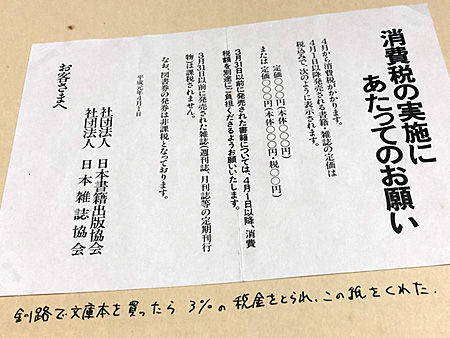 消費税の実施に
あたってのお願い
４月から消費税がかかります。
４月１日以降発売される書籍・雑誌の定価は
税込みで、次のように表示されます。
定価〇〇〇円（本体〇〇〇円）
または 定価〇〇〇円（本体〇〇〇円・税〇〇円）
３月31日以前に発売された書籍については、４月１日以降、消費
税額を別途にご負担くださるようお願いいたします。
３月31日以前に発売された雑誌（週刊誌、月刊誌等の定期刊行
物）は課税されません。
なお、図書券の発券は非課税となっております。
平成元年４月１日
社団法人 日本書籍出版協会
社団法人 日本雑誌協会
お客さまへ
釧路で文庫本を買ったら 3%の税金をとられ、この紙をくれた.